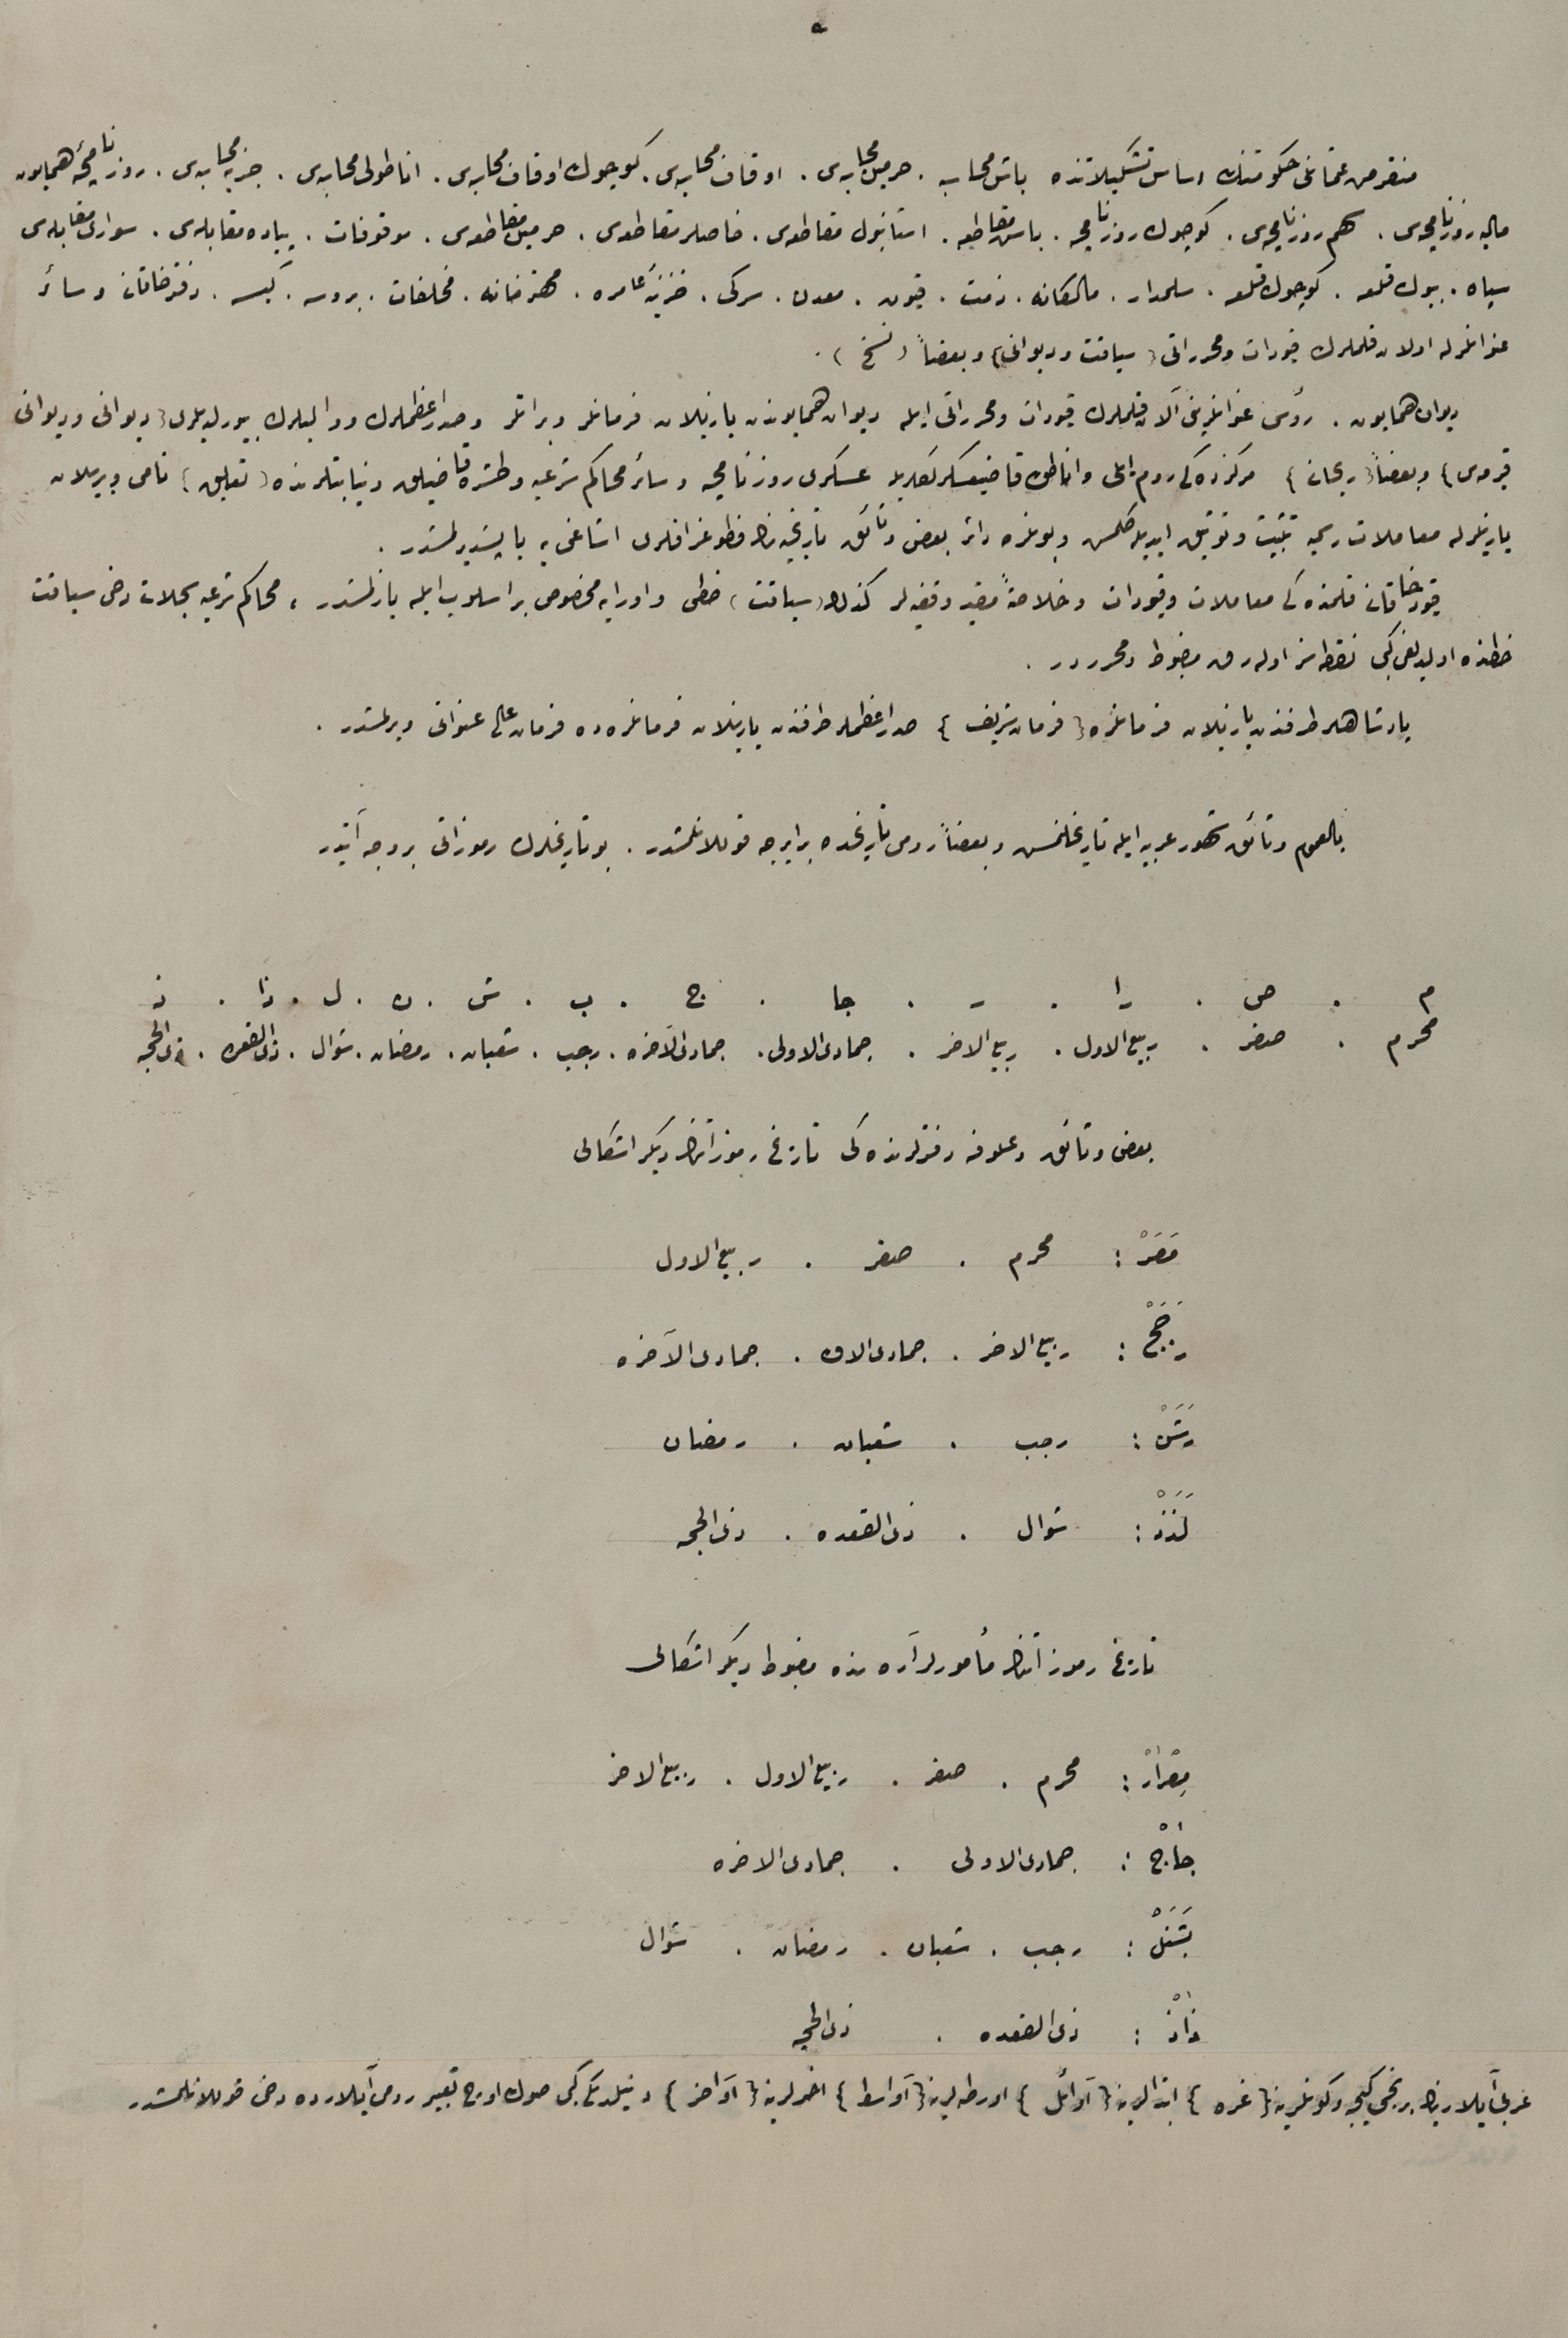 ٥
منقرض عثمانلی حكومتنك اساس تشكيلاتنده باش محاسبه . حرمين محاسبه‌سی . اوقاف محاسبه‌سی . كوچوك اوقاف محاسبه‌سی . اناطولی محاسبه‌سی . جزيه محاسبه‌سی . روزنامچۀ همايون
ماليه روزنامچه‌سی . سهم روزنامچه‌سی . كوچوك روزنامچه . باش مقاطعه . استانبول مقاطعه‌سی . خاصلر مقاطعه‌سی . حرمين مقاطعه‌سی . موقوفات . پياده مقابله‌سی . سواری مقابله‌سی
سپاه . بيوك قلعه . كوچوك قلعه . سلحدار . مالكانه . ذمت . قيون . معدن . سركی . خزينۀ عامره . مهترخانه . مخلفات . بروسه . كيسه . دفترخاقانی و سائر
عنوانلرله اولان قلملرك قيودات و محرراتی ( سياقت و ديوانی ) و بعضاً ( نسخ ) .
ديوان همايون . رؤس عنوانلرينی آلان قلملرك قيودات و محرراتی ايله ديوان همايوندن يازيلان فرمانلر و براتلر و صدراعظملرك و واليلرك بيورلديلری ( ديوانی و ديوانی
قيرمه‌سی ) و بعضاً ( ريحانی ) مركزده‌كی روم ايلی و اناطولی قاضيعسكرلكلريله عسكری روزنامچه و سائر محاكم شرعيه و طشره قاضيلق و نيابتلرنده ( تعليق ) نامی ويريلان
يازيلرله معاملات رسميه تثبيت و توثيق ايديله‌كلمش و بونلره دائر بعض وثائق تاريخيه‌نك فطوغرافلری اشاغی‌يه ياپيشديرلمشدر .
قيود خاقانی قلمنده‌كی معاملات و قيودات و خلاصةً مقيد وقفيه‌لر كذلك ( سياقت ) خطی و اورايه مخصوص بر اسلوب ايله يازلمشدر ، محاكم شرعيه سجلات دخی سياقت
خطنده اولديغی كبی نقطه‌سز اوله‌رق مضبوط و محرردر .
پادشاهلر طرفندن يازيلان فرمانلره ( فرمان شريف ) صدراعظملر طرفندن يازيلان فرمانلره ده فرمان عالی عنوانی ويرلمشدر .
بالعموم وثائق شهور عربيه ايله تاريخلنمش و بعضاً رومی تاريخده برابرجه قوللانلمشدر . بو تاريخلرك رموزاتی بروجه آتيدر
م . ص . را . ر . جا . ج . ب . ش . ن . ل . ذا . ذ
محرم . صفر . ربيع الاول . ربيع الاخر . جمادی الاولی . جمادی الآخره . رجب . شعبان . رمضان . شوال . ذی القعده . ذی الحجه
بعض وثائق و علوفه دفترلرنده‌كی تاريخ رموزاتنك ديكر اشكالی
مَصَرْ : محرم . صفر . ربيع الاول
رَجَجْ : ربيع الاخر . جمادی الاولی . جمادی الآخره
رَشَنْ : رجب . شعبان . رمضان
لَذَذْ : شوال . ذی القعده . ذی الحجه
تاريخ رموزاتنك مأمورلر آره‌سنده مضبوط ديكر اشكالی
مِصْرَارْ : محرم . صفر . ربيع الاول . ربيع الاخر
جَاجْ : جمادی الاولی . جمادی الاخره
بَشَنَلْ : رجب . شعبان . رمضان . شوال
ذَاذْ : ذی القعده . ذی الحجه
عربی آيلرينك برنجی كيجه و كونلرينه ( غره ) ابتدالرينه ( اَوائل ) اورطه‌لرينه ( اَواسط ) اخرلرينه ( اَواخر ) دينلديكی كبی صوك اوچ تعبير رومی آيلارده دخی قوللانلمشدر